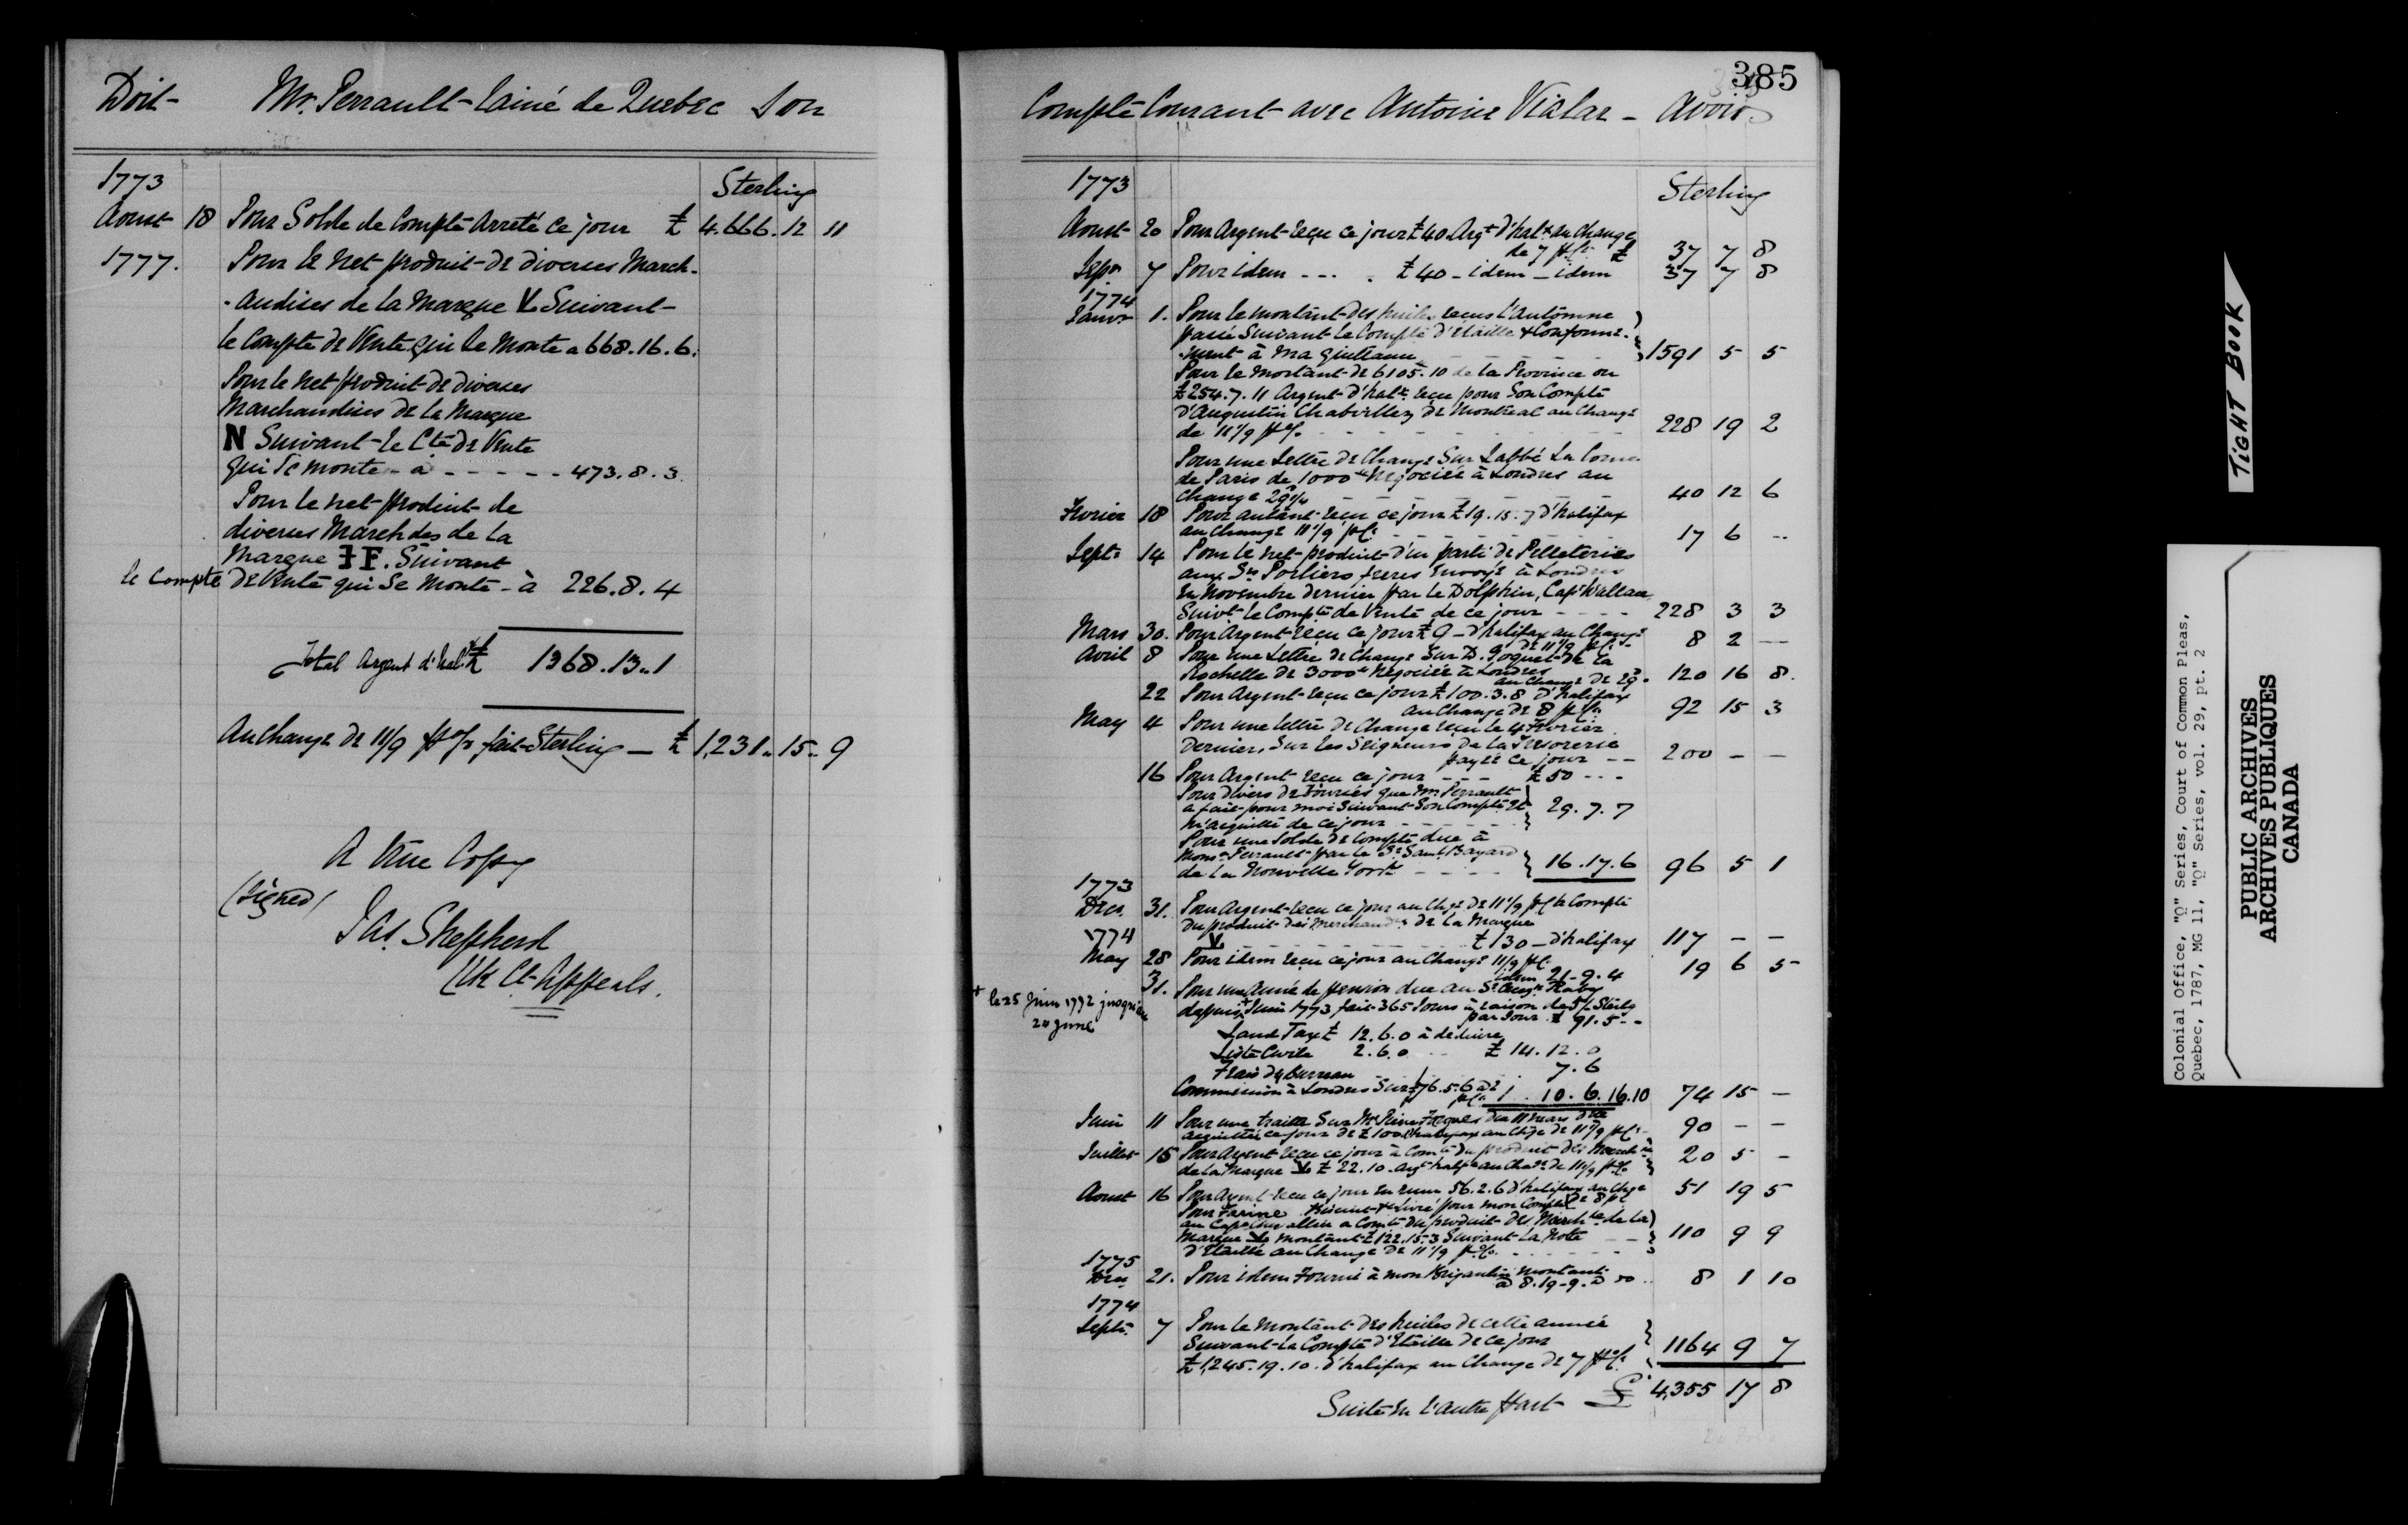 Doit - Mr. Perrault - l'ainé de Quebec Son
1773
Sterling
Aoust 18 Pour Solde de Compte Arreté ce jour £ 4.666. 12 11
1777. Pour le net produit de diverses March-
-andises de la Marque V Suivant
le Compte de Vente qui se monte a 668.16.6.
Pour le net produit de diverses
Marchandises de la Marque
N Suivant le Cte de Vente
qui se monte - à - - - - - 473.8.3.
Pour le net produit de
diverses Marchdes de la
Marque F. Suivant
le Compte de Vente qui se monte - à 226.8.4
Total Argent d'hal.x £ 1368.13.1
Au change de 11/9 p% fait Sterling — £ 1,231..15..9
A True Copy
(Signed)
Jas. Shepherd
Clk Ct Appeals.
385
Compte Courant avec Antoine Vialar - Avoir
1773
Sterling
Aoust 20 Pour Argent reçu ce jour £40 Argt d'halx au change
de 7 p% £ 37 7 8
Sepr 7 Pour idem - - - . £40 - idem - idem 37 7 8
1774
Janvr 1. Pour le montant des huiles reçus l'Automne
passé Suivant le Compte d'étaillé & Conformé-
-ment à ma quittance 1591 5 5
Pour le montant de 6105.10 de la Province ou
£254.7.11 Argent d'halx reçu pour Son Compte
d'Augustin Chaboillez de Montreal au Change
de 11 1/9 p% 228 19 2
Pour une Lettre de Change Sur l'abbé La Corne
de Paris de 1000 # négociée à Londres au
change 29 1/4 40 12 6
Fevrier 18 Pour autant reçu ce jour £19.15.7 d'halifax
au change 11 1/9 p% 17 6 --
Septe 14 Pour le net produit d'un parti de Pelleteries
aux Srs Porliers freres Envoyé à Londres
En Novembre dernier par le Dolphin, Capt Wallace
Suivt le Compte de Vente de ce jour - - - - 228 3 3
Mars 30. Pour Argent reçu ce jour £9 - d'halifax au Change
de 11 1/9 p% 8 2 —
Avril 8 Pour une Lettre de Change Sur D. Goguet de la
Rochelle de 3000 # Négociée à Londres
au Change de 29. 120 16 8.
22 Pour Argent reçu ce jour £100.3.8 d'halifax
au Change de 8 p% 92 15 3
May 4 Pour une lettre de Change reçu le 4 Fevrier
dernier, Sur les Seigneurs de la Tresorerie
payée ce jour - - 200 - -
16 Pour Argent reçu ce jour - - - £50 - - -
Pour divers de Boursés que Mr Perrault
a fait pour moi Suivant Son Compte et
m'acquitté de ce jour - - - - - 29.7.7
Pour une Solde de Compte due à
Monsr Perrault par le Sr Saml Bayard
de la Nouvelle York - - - - - 16.17.6 96 5 1
1773
Decr. 31. Pour Argent reçu ce jour au chge de 11 1/9 p% à Compte
du produit des Merchands de la Marque
V £130 - d'halifax 117 - -
1774
May 28 Pour idem reçu ce jour au Change 11/9 p%
idem 21-9.4 19 6 5
31. Pour une Année de pension due au Sr Augn Raby
+ le 25 Juin 1772 jusqu'au
24 June
depuis + Juin 1773 fait 365 Jours à raison de 5/ Sterlg
par Jour £ 91.5 - -
Land Tax £ 12.6.0 à déduire
Liste Civile 2.6.0 £ 14.12.0
Frais du Bureau 7.6
Commission à Londres Sur £76.5.6 à 2
p% 1. 10.6. 16.10 74 15 —
Juin 11 Pour une traitte Sur Mr Pierre
acquittée ce jour de £100 d'halifax au chge de 11 1/9 p% 90 - -
Juillet 15 Pour Argent reçu ce jour à Comte du produit des March
de la Marque V £ 22.10. Argt halfx au Chae de 11 1/9 p% 20 5 -
Aoust 16 Pour Argent reçu ce jour en rum 56.2.6 d'halifax au chge
de 8 p% 51 19 5
Pour Farine Biscuit &c Livré pour mon Compte
au Capne a Comte du produit des March de la
Marque V montant £122.15.3 Suivant la Note
d'Etaillé au Change de 11 1/9 p% 110 9 9
1775
Decr 21. Pour idem Fourni à mon Brigantin montant
à 8.19-9. à 8 1 10
1774
Septe. 7 Pour le montant des huiles de cette année
Suivant le Compte d'Etaillé de ce jour
£1,245.19.10. d'halifax au Change de 7 p% 1164 9 7
Suite En l'autre Part £ 4,355 17 8
TIGHT BOOK
Colonial Office, "Q" Series, Court of Common Pleas,
Quebec, 1787, MG 11, "Q" Series, vol. 29, pt. 2
PUBLIC ARCHIVES
ARCHIVES PUBLIQUES
CANADA